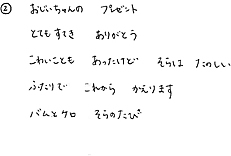 ② おじいちゃんの プレゼント
とてもすてき ありがとう
こわいことも あったけど そらは たのしい
ふたりで これから かえります
バムとケロ そらのたび